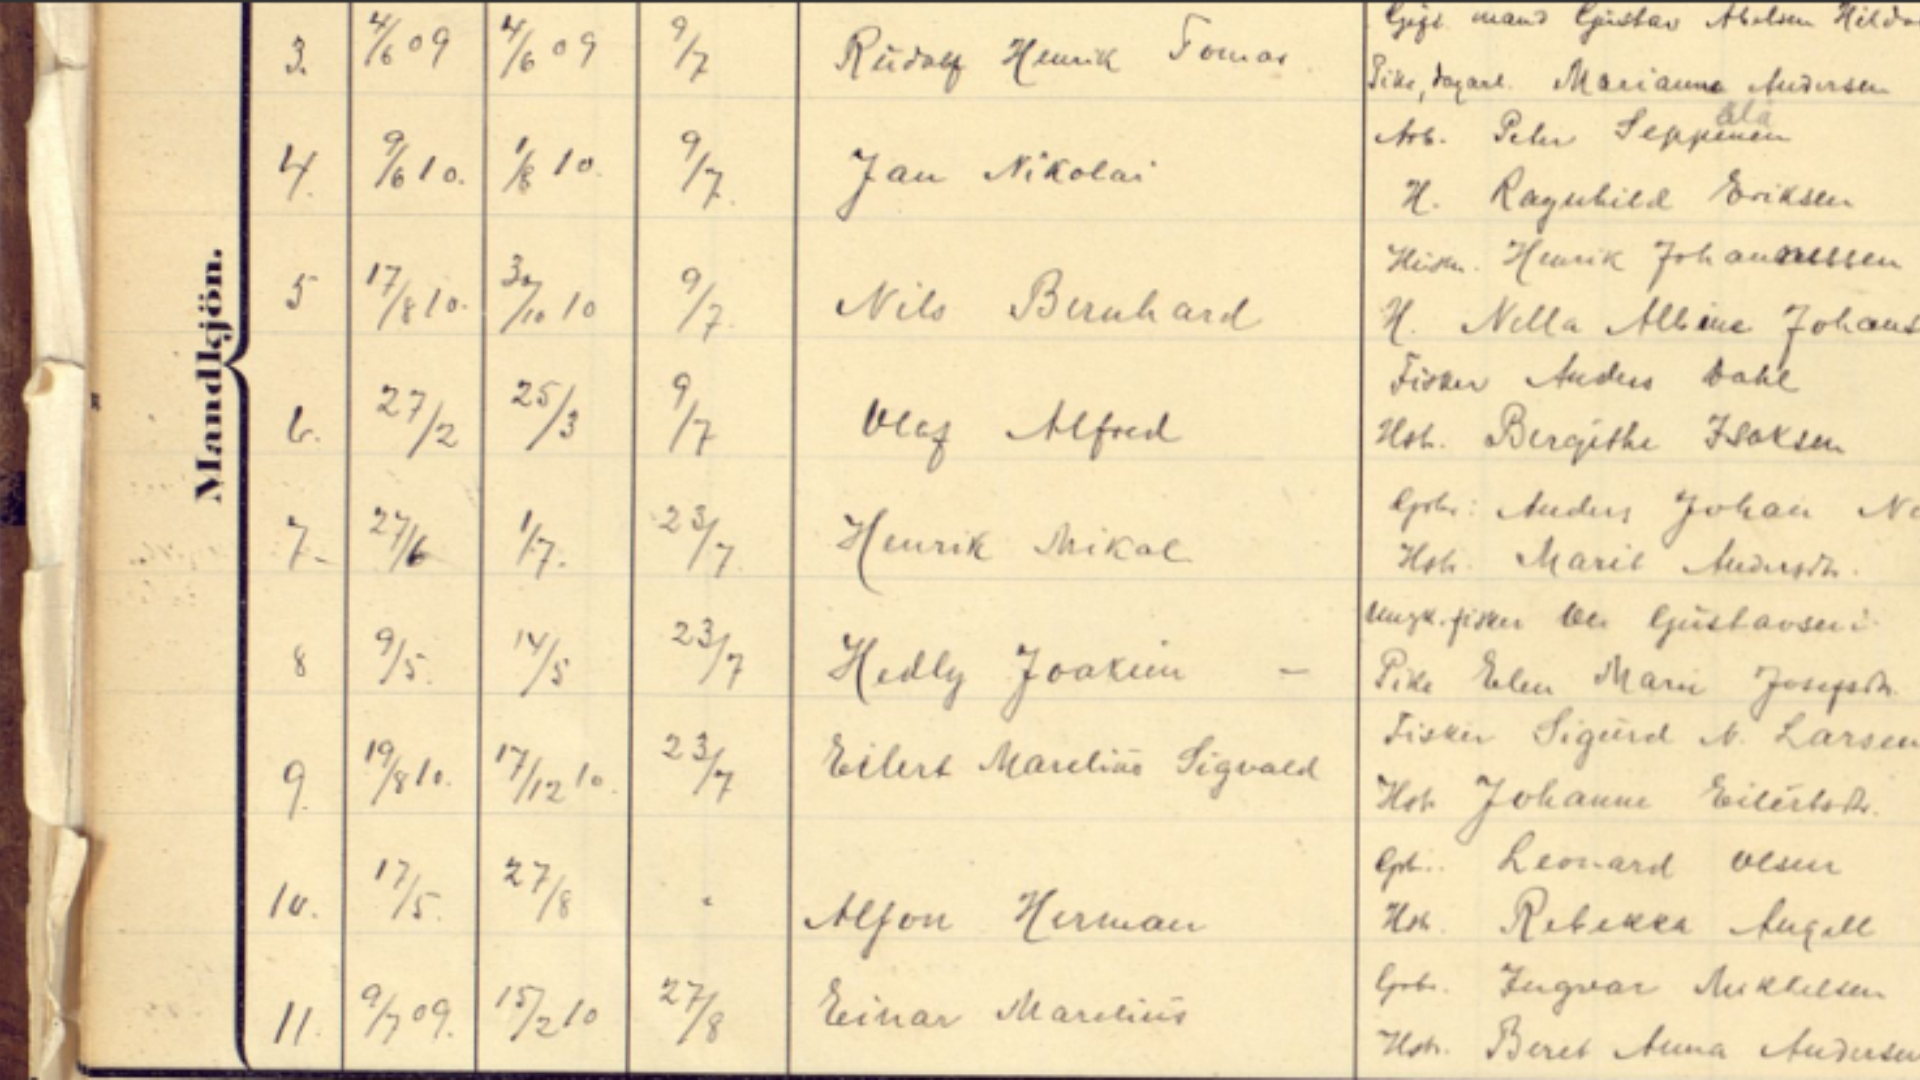 Mandkjön.
3. 4/6 09 4/6 09 9/7 Rudolf Henrik Tomas
Gift mand Gustav Abelsen
Pike, dagarb. Marianna Andersen
4. 9/6 10. 1/8 10. 9/7. Jan Nikolai
Arb. Peter Seppenen
ala
H. Ragnhild Eriksen
5 17/8 10. 30/10 10 9/7. Nils Bernhard
Husm. Henrik Johannessen
H. Nella Albine Johans
6. 27/2 25/3 9/7 Olaf Alfred
Fisker Anders Dahl
Hst. Bergithe Isaksen
7- 27/6 1/7. 23/7. Henrik Mikal
Gbr: Anders Johan
Hst. Marit Andersdtr.
8 9/5. 14/5 23/7 Hedly Joakim -
Ungk. fisker Ole Gustavsen
Pike Elen Marie Josefsdtr.
9. 19/8 10. 17/12 10. 23/7 Eilert Marelius Sigvald
Fisker Sigurd N. Larsen
Hst Johanne Eilertsdtr.
10. 17/5. 27/8 Alfon Herman
Gbr. Leonard Olsen
Hst. Rebekka Angell
11. 9/7 09. 15/2 10 27/8 Einar Marelius
Gbr. Ingvar Mikkelsen
Hst. Beret Anna Andersen